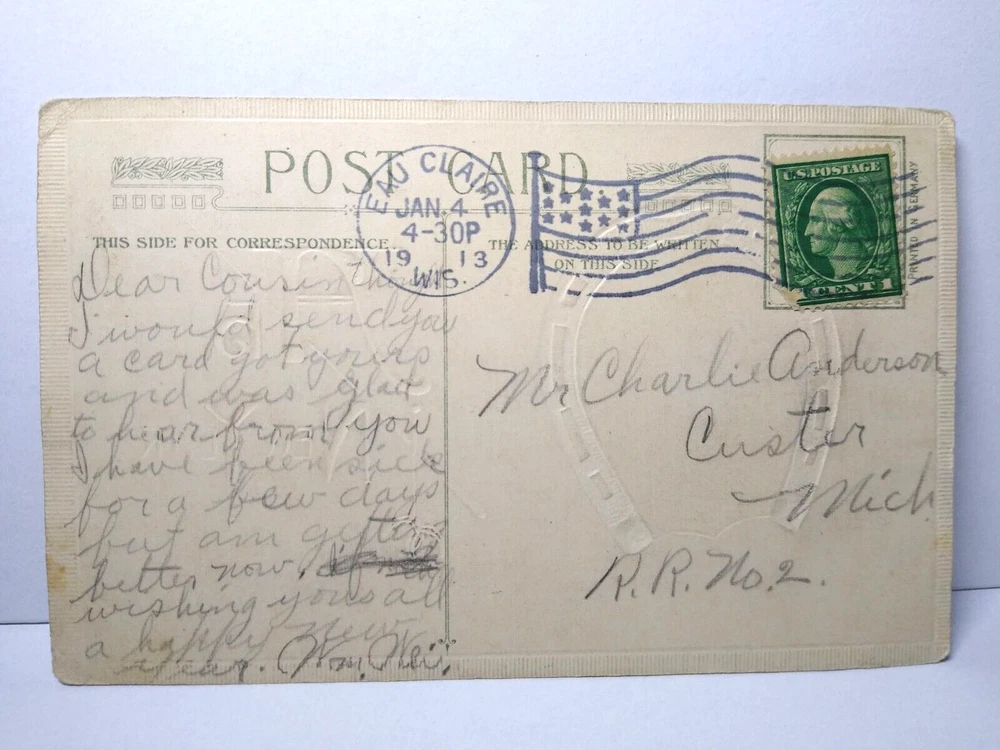 POST CARD
EAU CLAIRE
JAN 4
4-30P
19 13
WIS.
U.S. POSTAGE
CENT 1
PRINTED IN GERMANY
THIS SIDE FOR CORRESPONDENCE.
THE ADDRESS TO BE WRITTEN
ON THIS SIDE
Dear Cousin
I would send you
a card got yours
and was glad
to hear from you
I have been sick
for a few days
but am
better now.
wishing you all
a happy new
year. Wm.
Mr Charlie Anderson
Custer
Mich
R.R. No. 2.